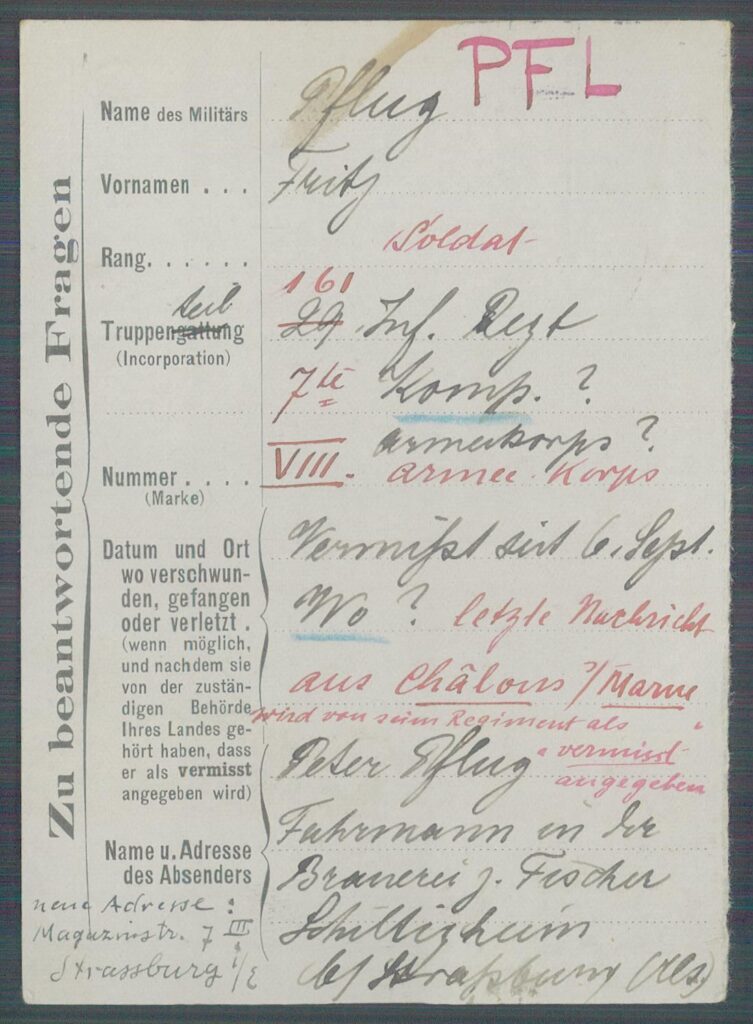 PFL
Zu beantwortende Fragen
Name des Militärs Pflug
Vornamen . . . Fritz
Rang. . . . . . Soldat
161
Truppengattung teil 29 Inf. Regt
(Incorporation)
7te Komp. ?
Armeekorps ?
Nummer . . . . VIII. Armee-Korps
(Marke)
Datum und Ort
wo verschwun-
den, gefangen
oder verletzt .
(wenn möglich,
und nachdem sie
von der zustän-
digen Behörde
Ihres Landes ge-
hört haben, dass
er als vermisst
angegeben wird)
Vermißt seit 6. Sept.
Wo ? letzte Nachricht
aus Châlons s/Marne
wird von seim Regiment als
"vermisst"
angegeben
Name u. Adresse
des Absenders
Peter Pflug
Fuhrmann in der
Brauerei z. Fischer
Schiltigheim
b/ Straßburg (Els.)
neue Adresse :
Magazinstr. 7 III
Strassburg i/E